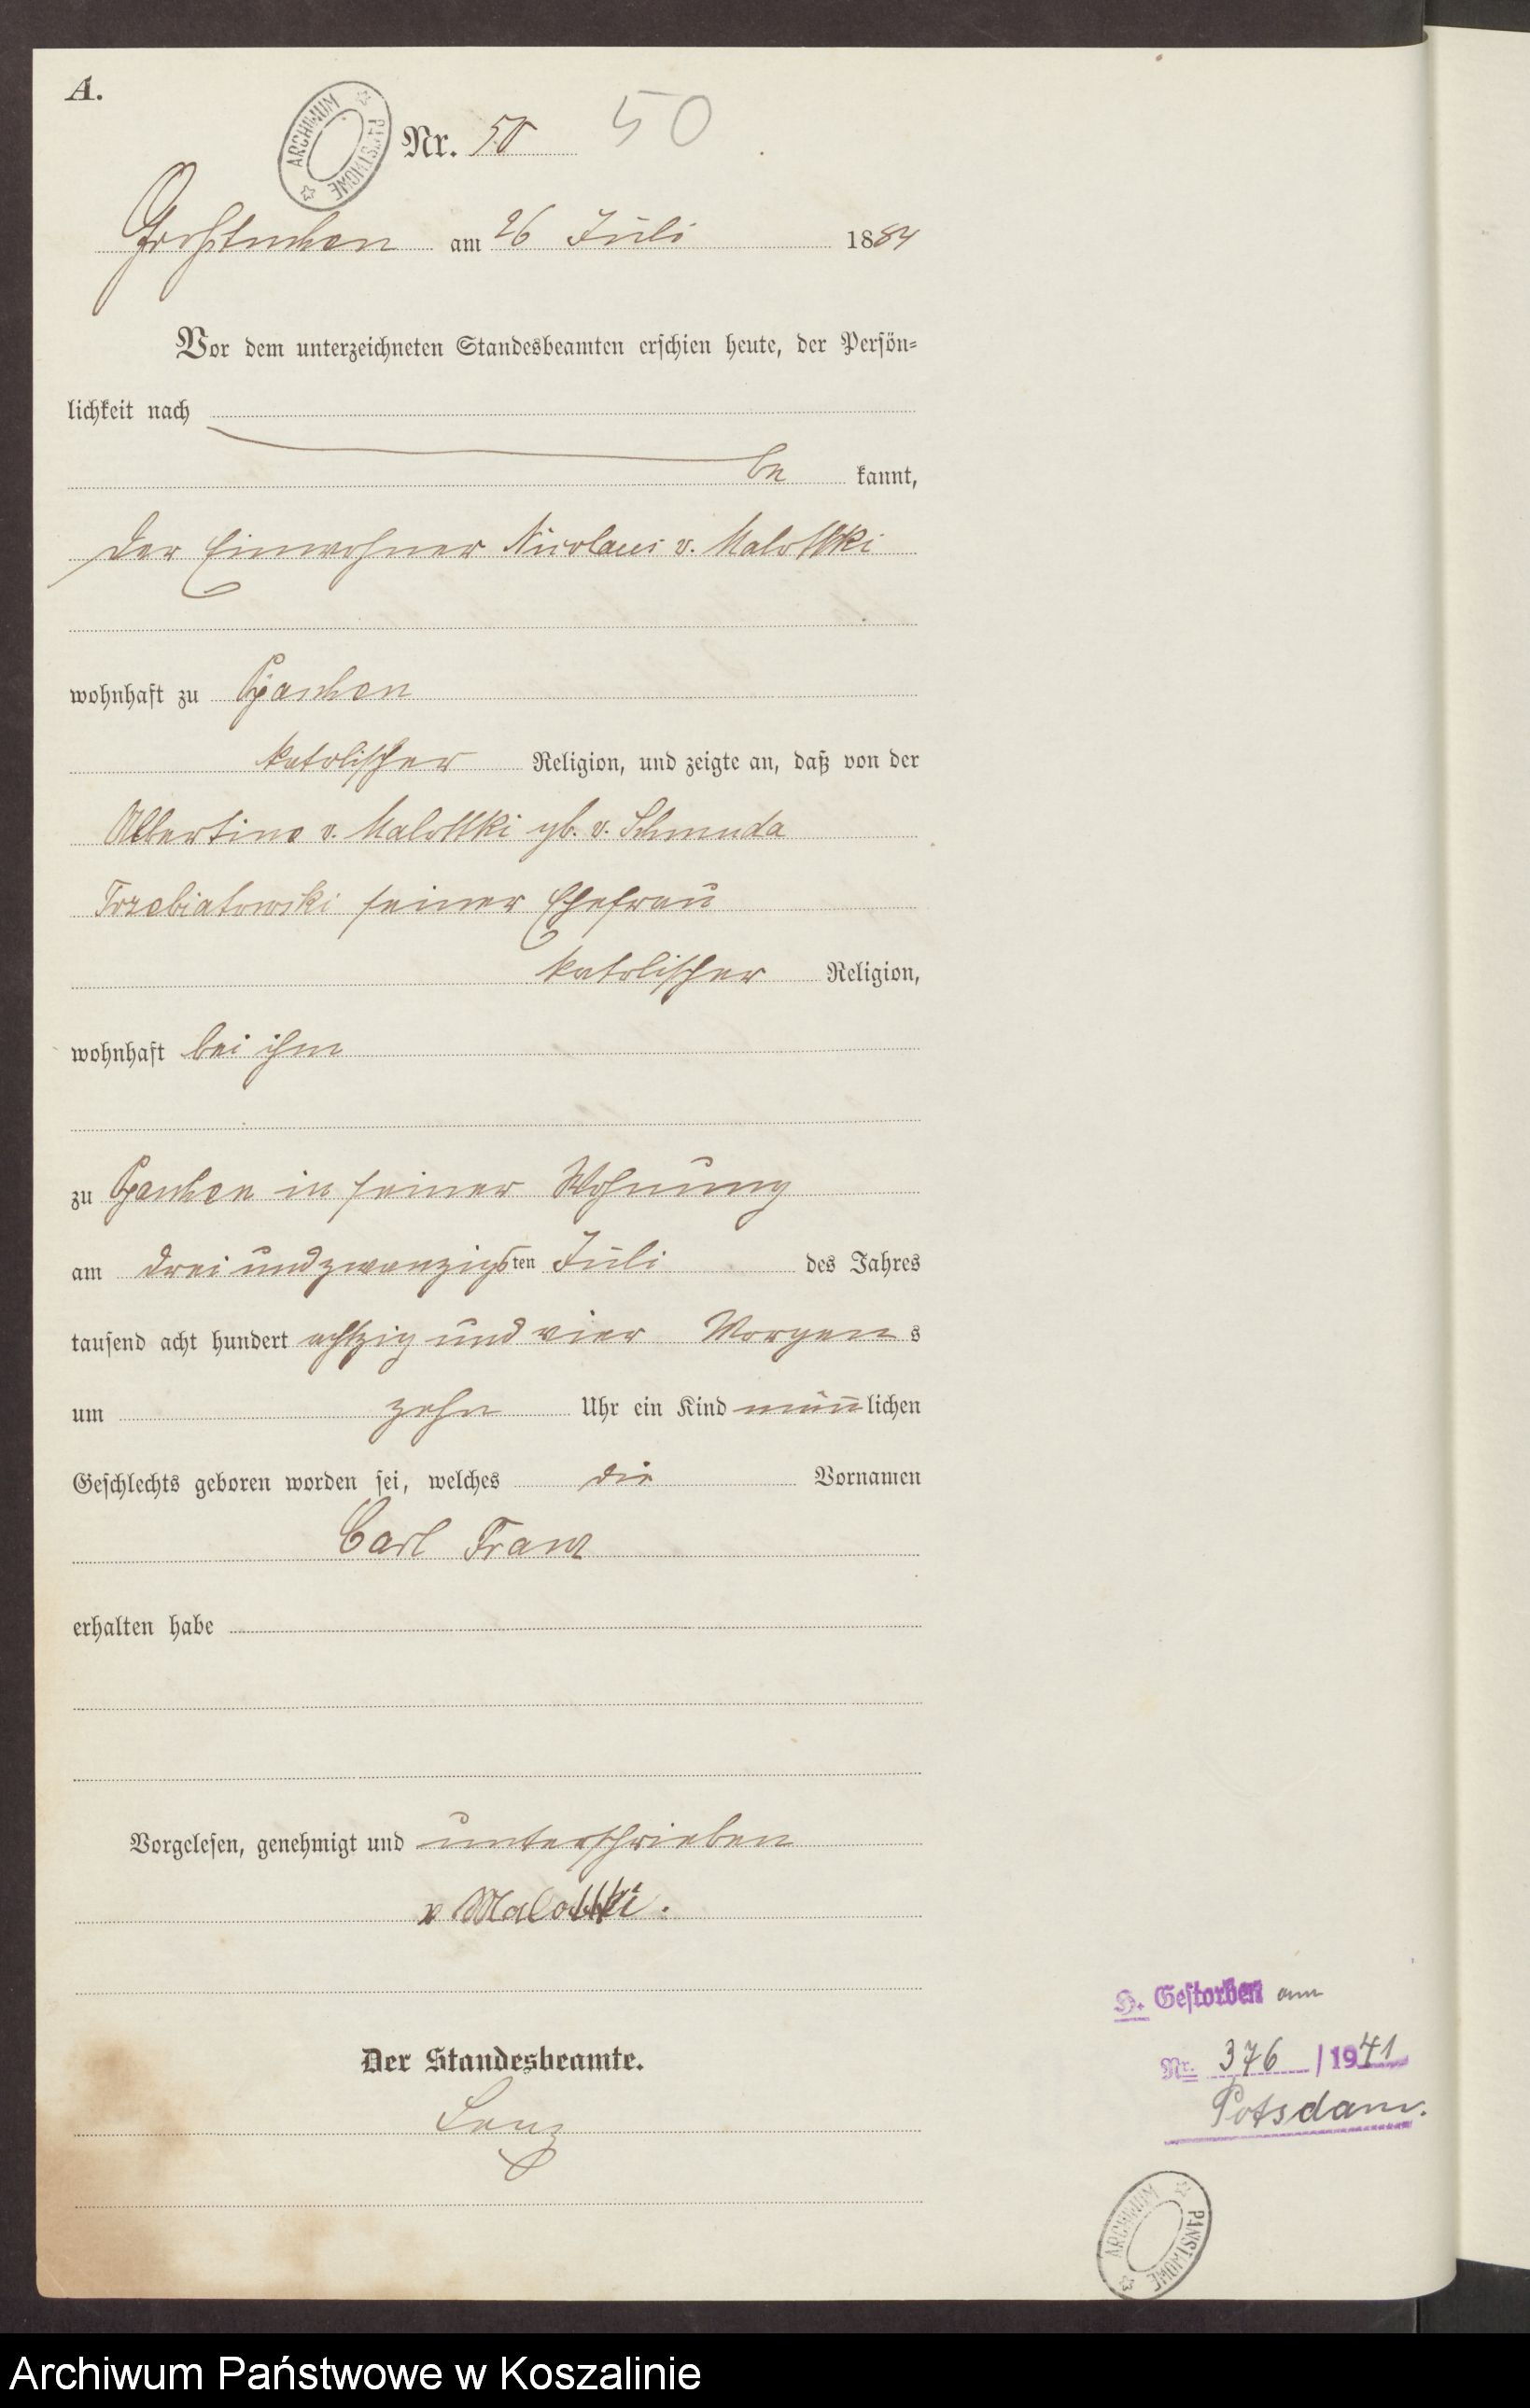 A.
ARCHIWUM PAŃSTWOWE
Nr. 50 50
Großtuchen am 26 Juli 1884
Vor dem unterzeichneten Standesbeamten erschien heute, der Persön-
lichkeit nach
be kannt,
der Einwohner Nicolaus v. Malottki
wohnhaft zu
katolischer Religion, und zeigte an, daß von der
Albertine v. Malottki gb. v. Schmuda
Trzebiatowski seiner Ehefrau
katolischer Religion,
wohnhaft bei ihm
zu in seiner Wohnung
am drei und zwanzigsten Juli des Jahres
tausend acht hundert achtzig und vier Morgens
um zehn Uhr ein Kind männlichen
Geschlechts geboren worden sei, welches die Vornamen
Carl Franz
erhalten habe
Vorgelesen, genehmigt und unterschrieben
v Malottki.
Der Standesbeamte.
Lenz
H. Gestorben am
Nr. 376 /1941
Potsdam.
ARCHIWUM PAŃSTWOWE
Archiwum Państwowe w Koszalinie